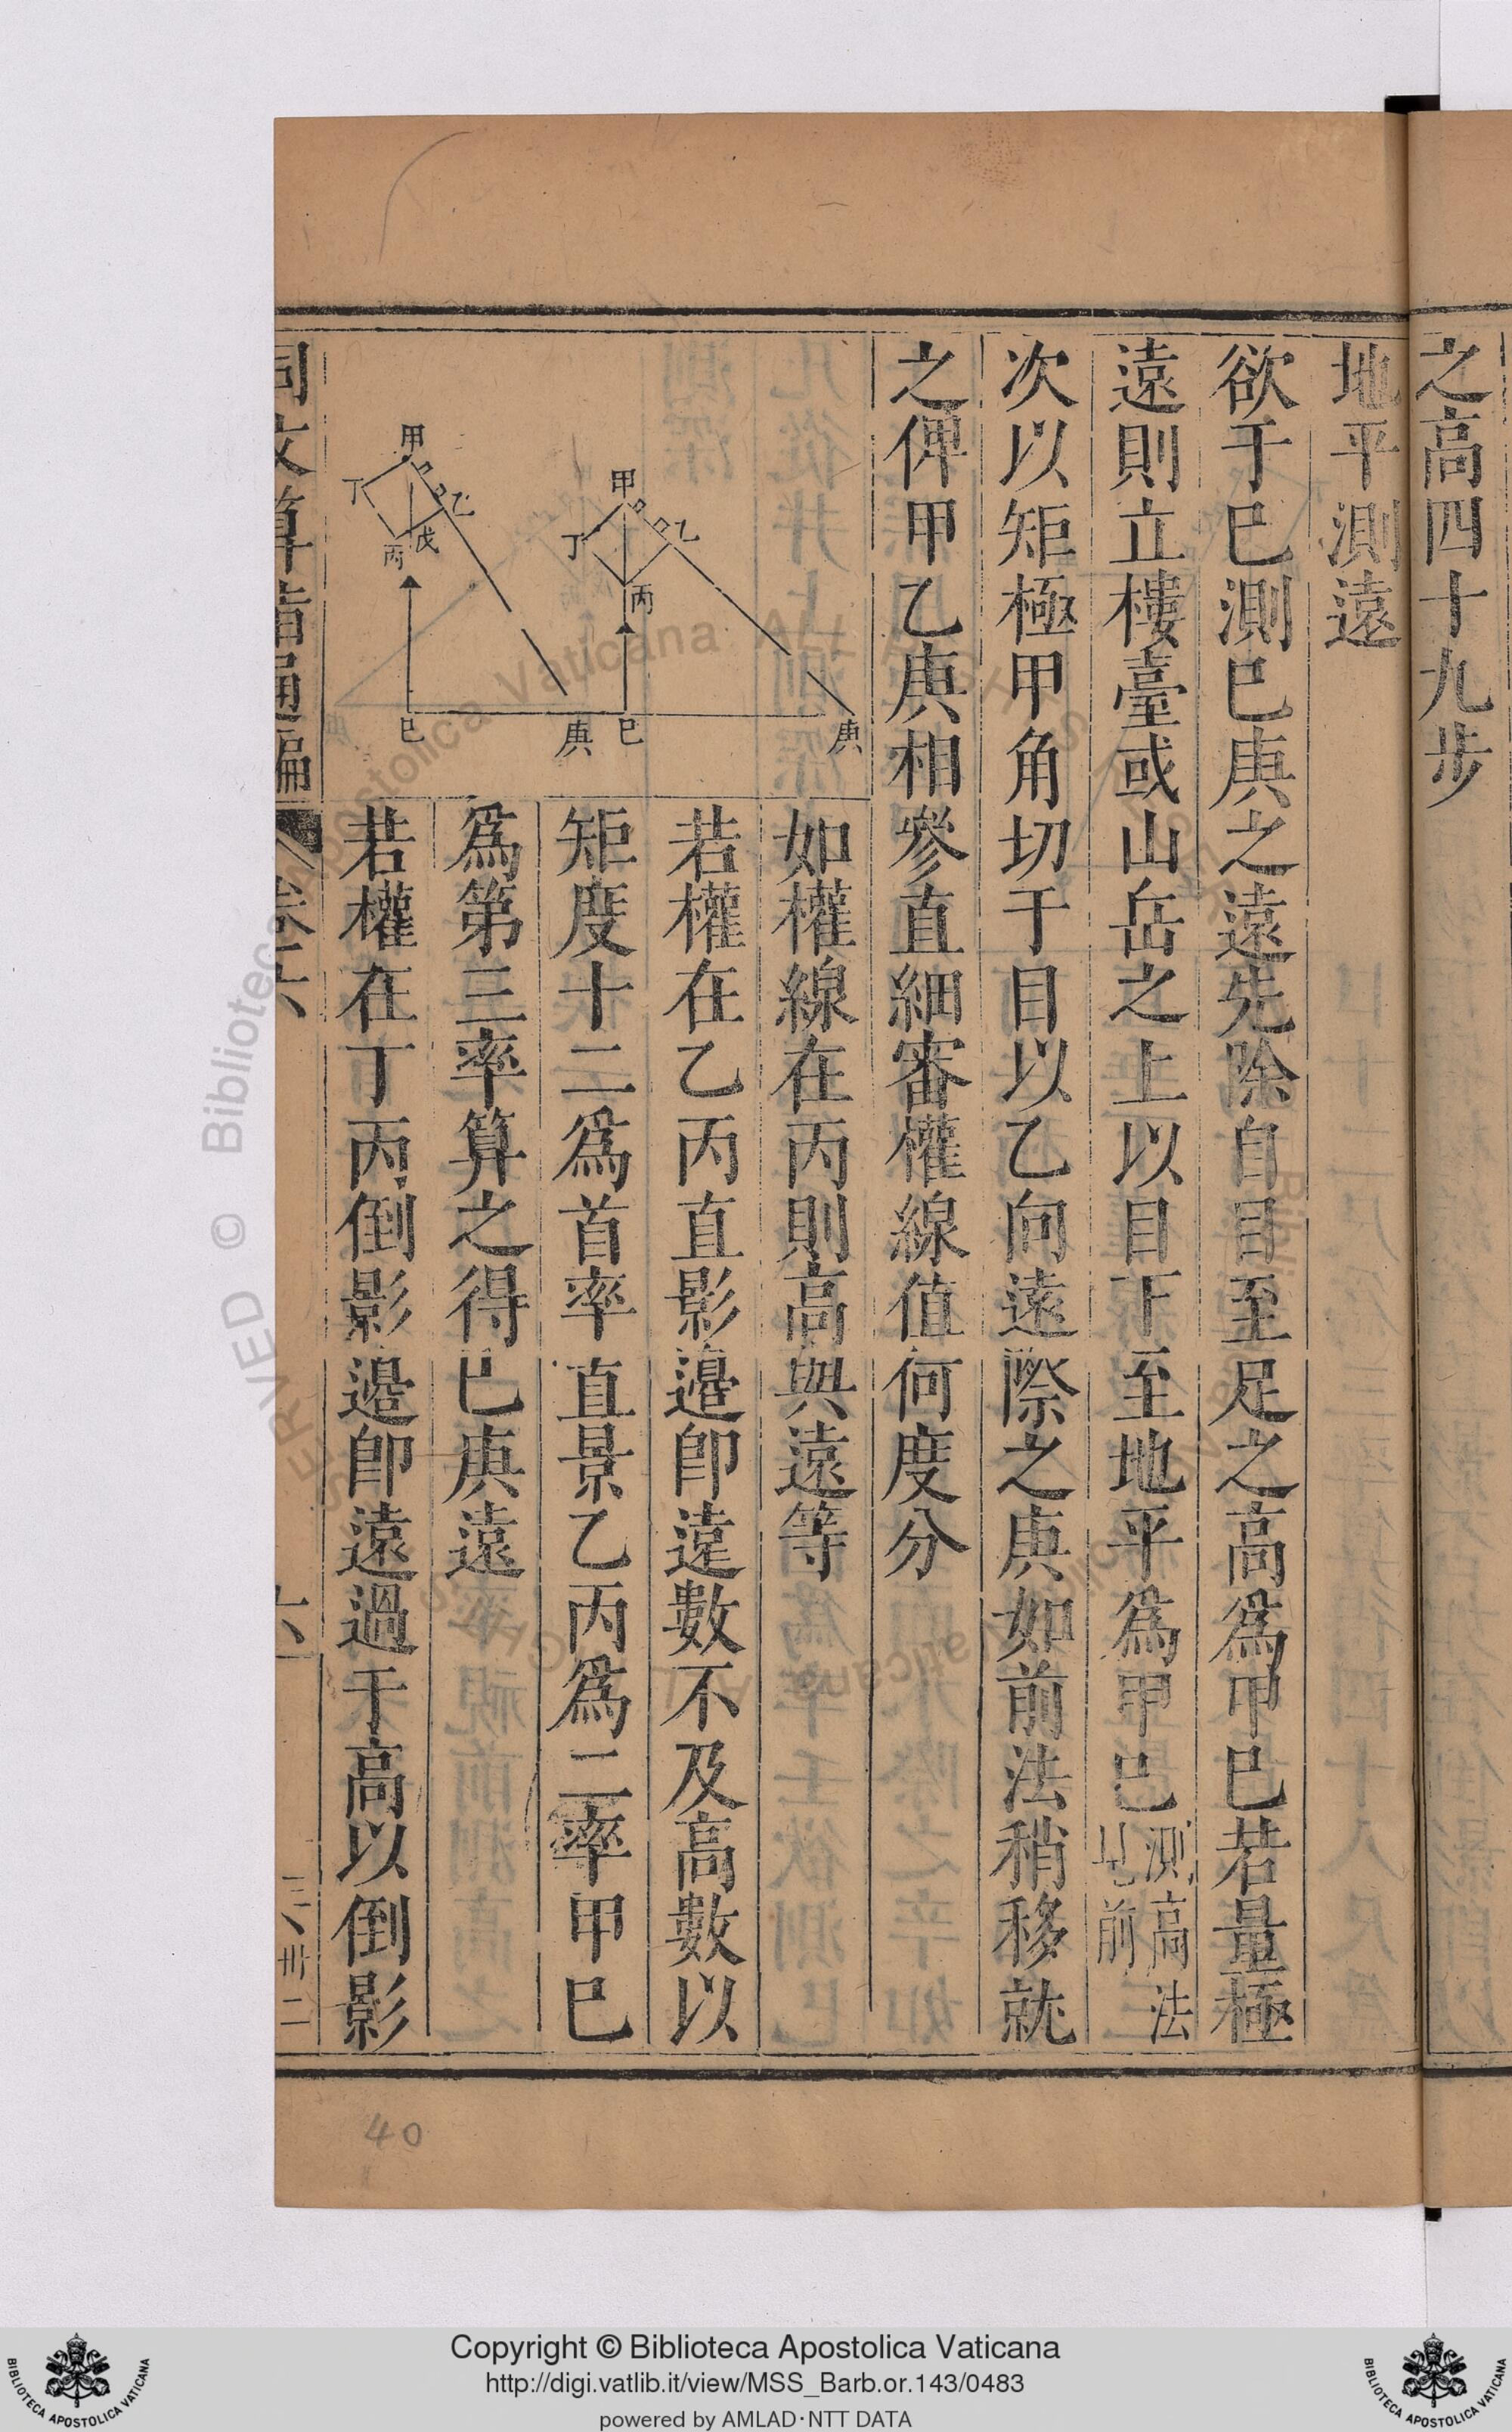 之高四十九步
地平測遠
欲于巳測巳庚之遠先除自目至足之高爲甲巳若量極
遠則立樓臺或山岳之上以目下至地平爲甲巳測高法見前
次以矩極甲角切于目以乙向遠際之庚如前法稍移就
之俾甲乙庚相參直細審權線值何度分
如權線在丙則高與遠等
若權在乙丙直影邉卽遠數不及高數以
矩度十二爲首率直景乙丙爲二率甲巳
爲第三率算之得巳庚遠
若權在丁丙倒影邉卽遠過于高以倒影
甲
丁
乙
丙
巳
庚
甲
丁
乙
丙
戊
巳
庚
同文算指通編
卷六
卅二
40
Biblioteca Apostolica Vaticana
Copyright © Biblioteca Apostolica Vaticana
http://digi.vatlib.it/view/MSS_Barb.or.143/0483
powered by AMLAD·NTT DATA
BIBLIOTECA APOSTOLICA VATICANA
BIBLIOTECA APOSTOLICA VATICANA